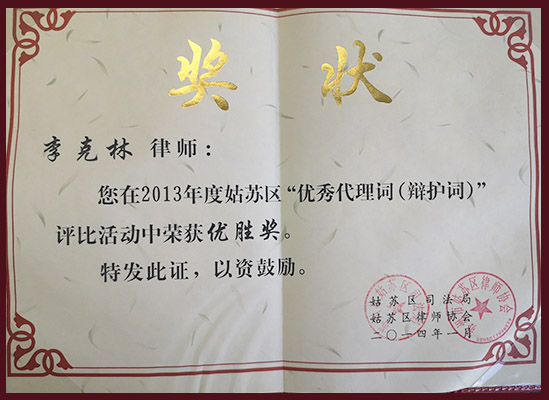 奖 状
李克林 律师：
您在2013年度姑苏区“优秀代理词（辩护词）”
评比活动中荣获优胜奖。
特发此证，以资鼓励。
姑苏区司法局
姑苏区律师协会
二〇一四年一月